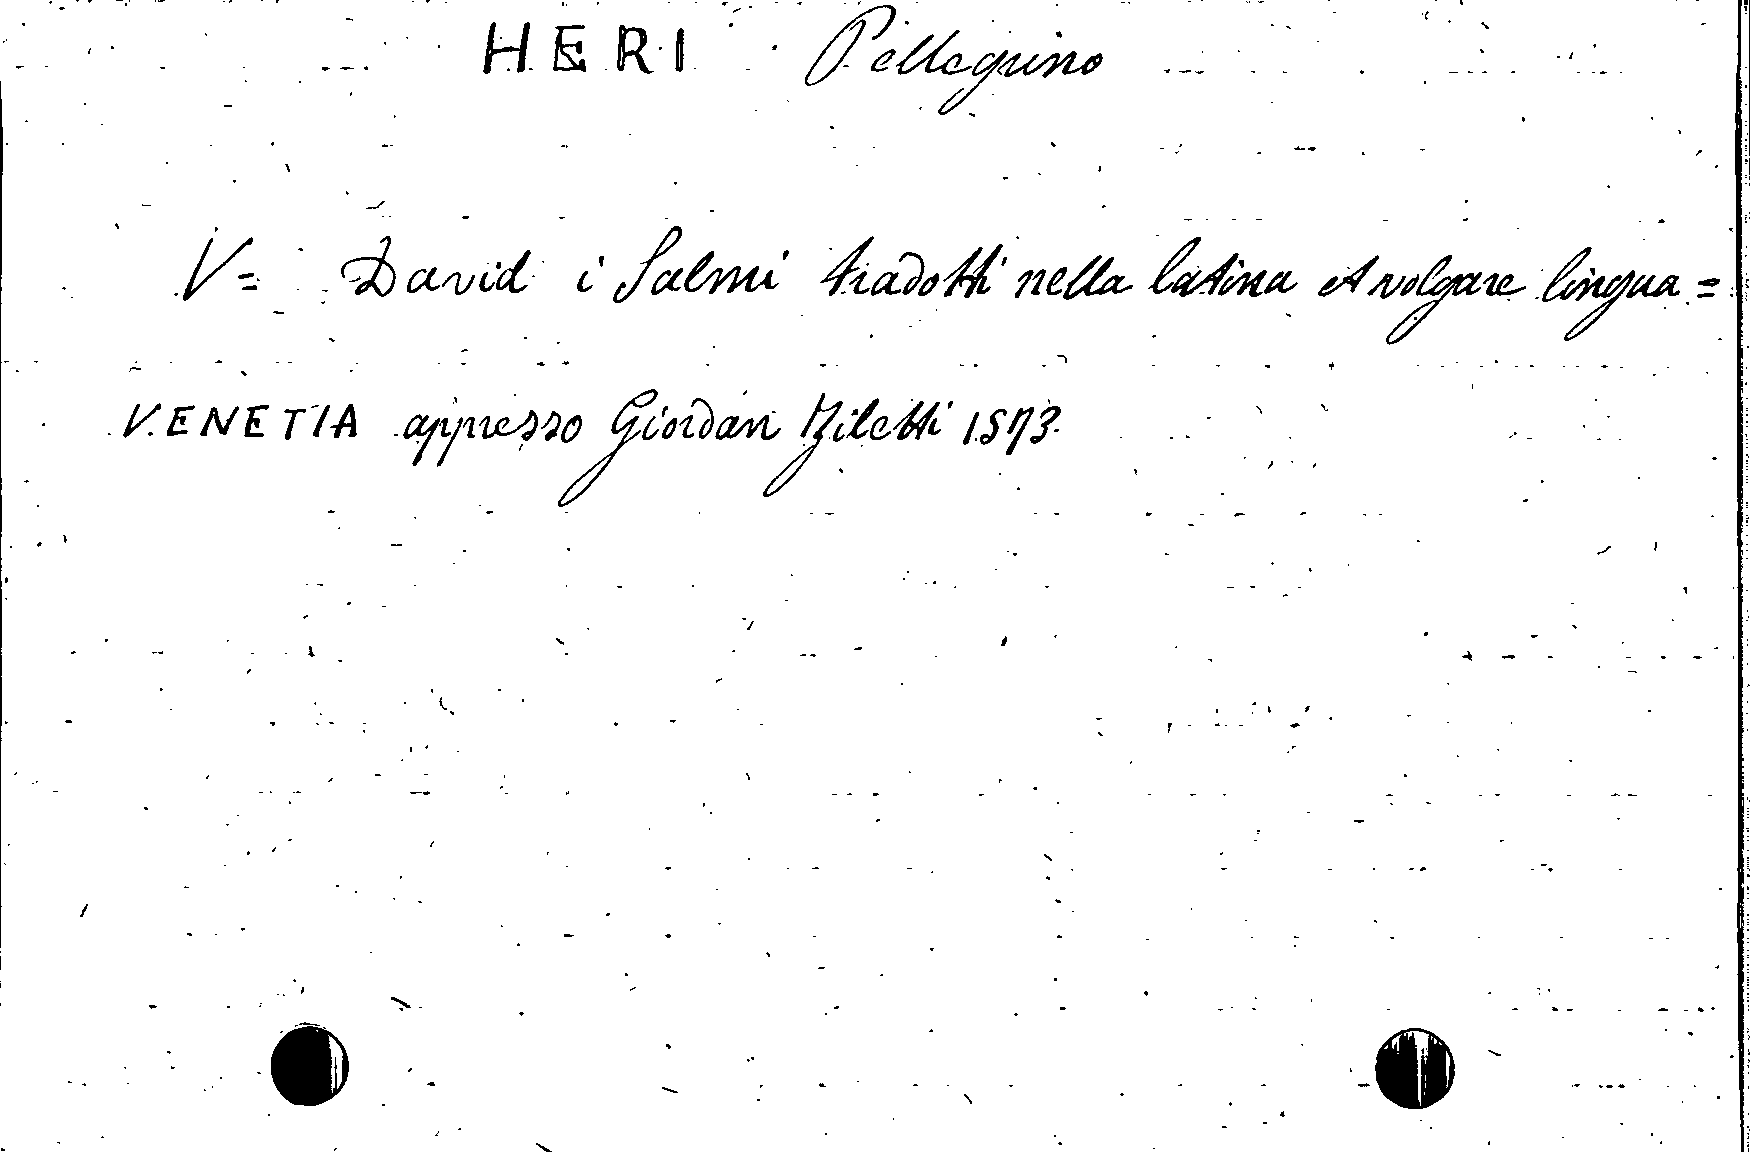 HERI Pellegrino
V= David i Salmi tradotti nella latina et volgare lingua=
VENETIA appresso Giordan Ziletti 1573